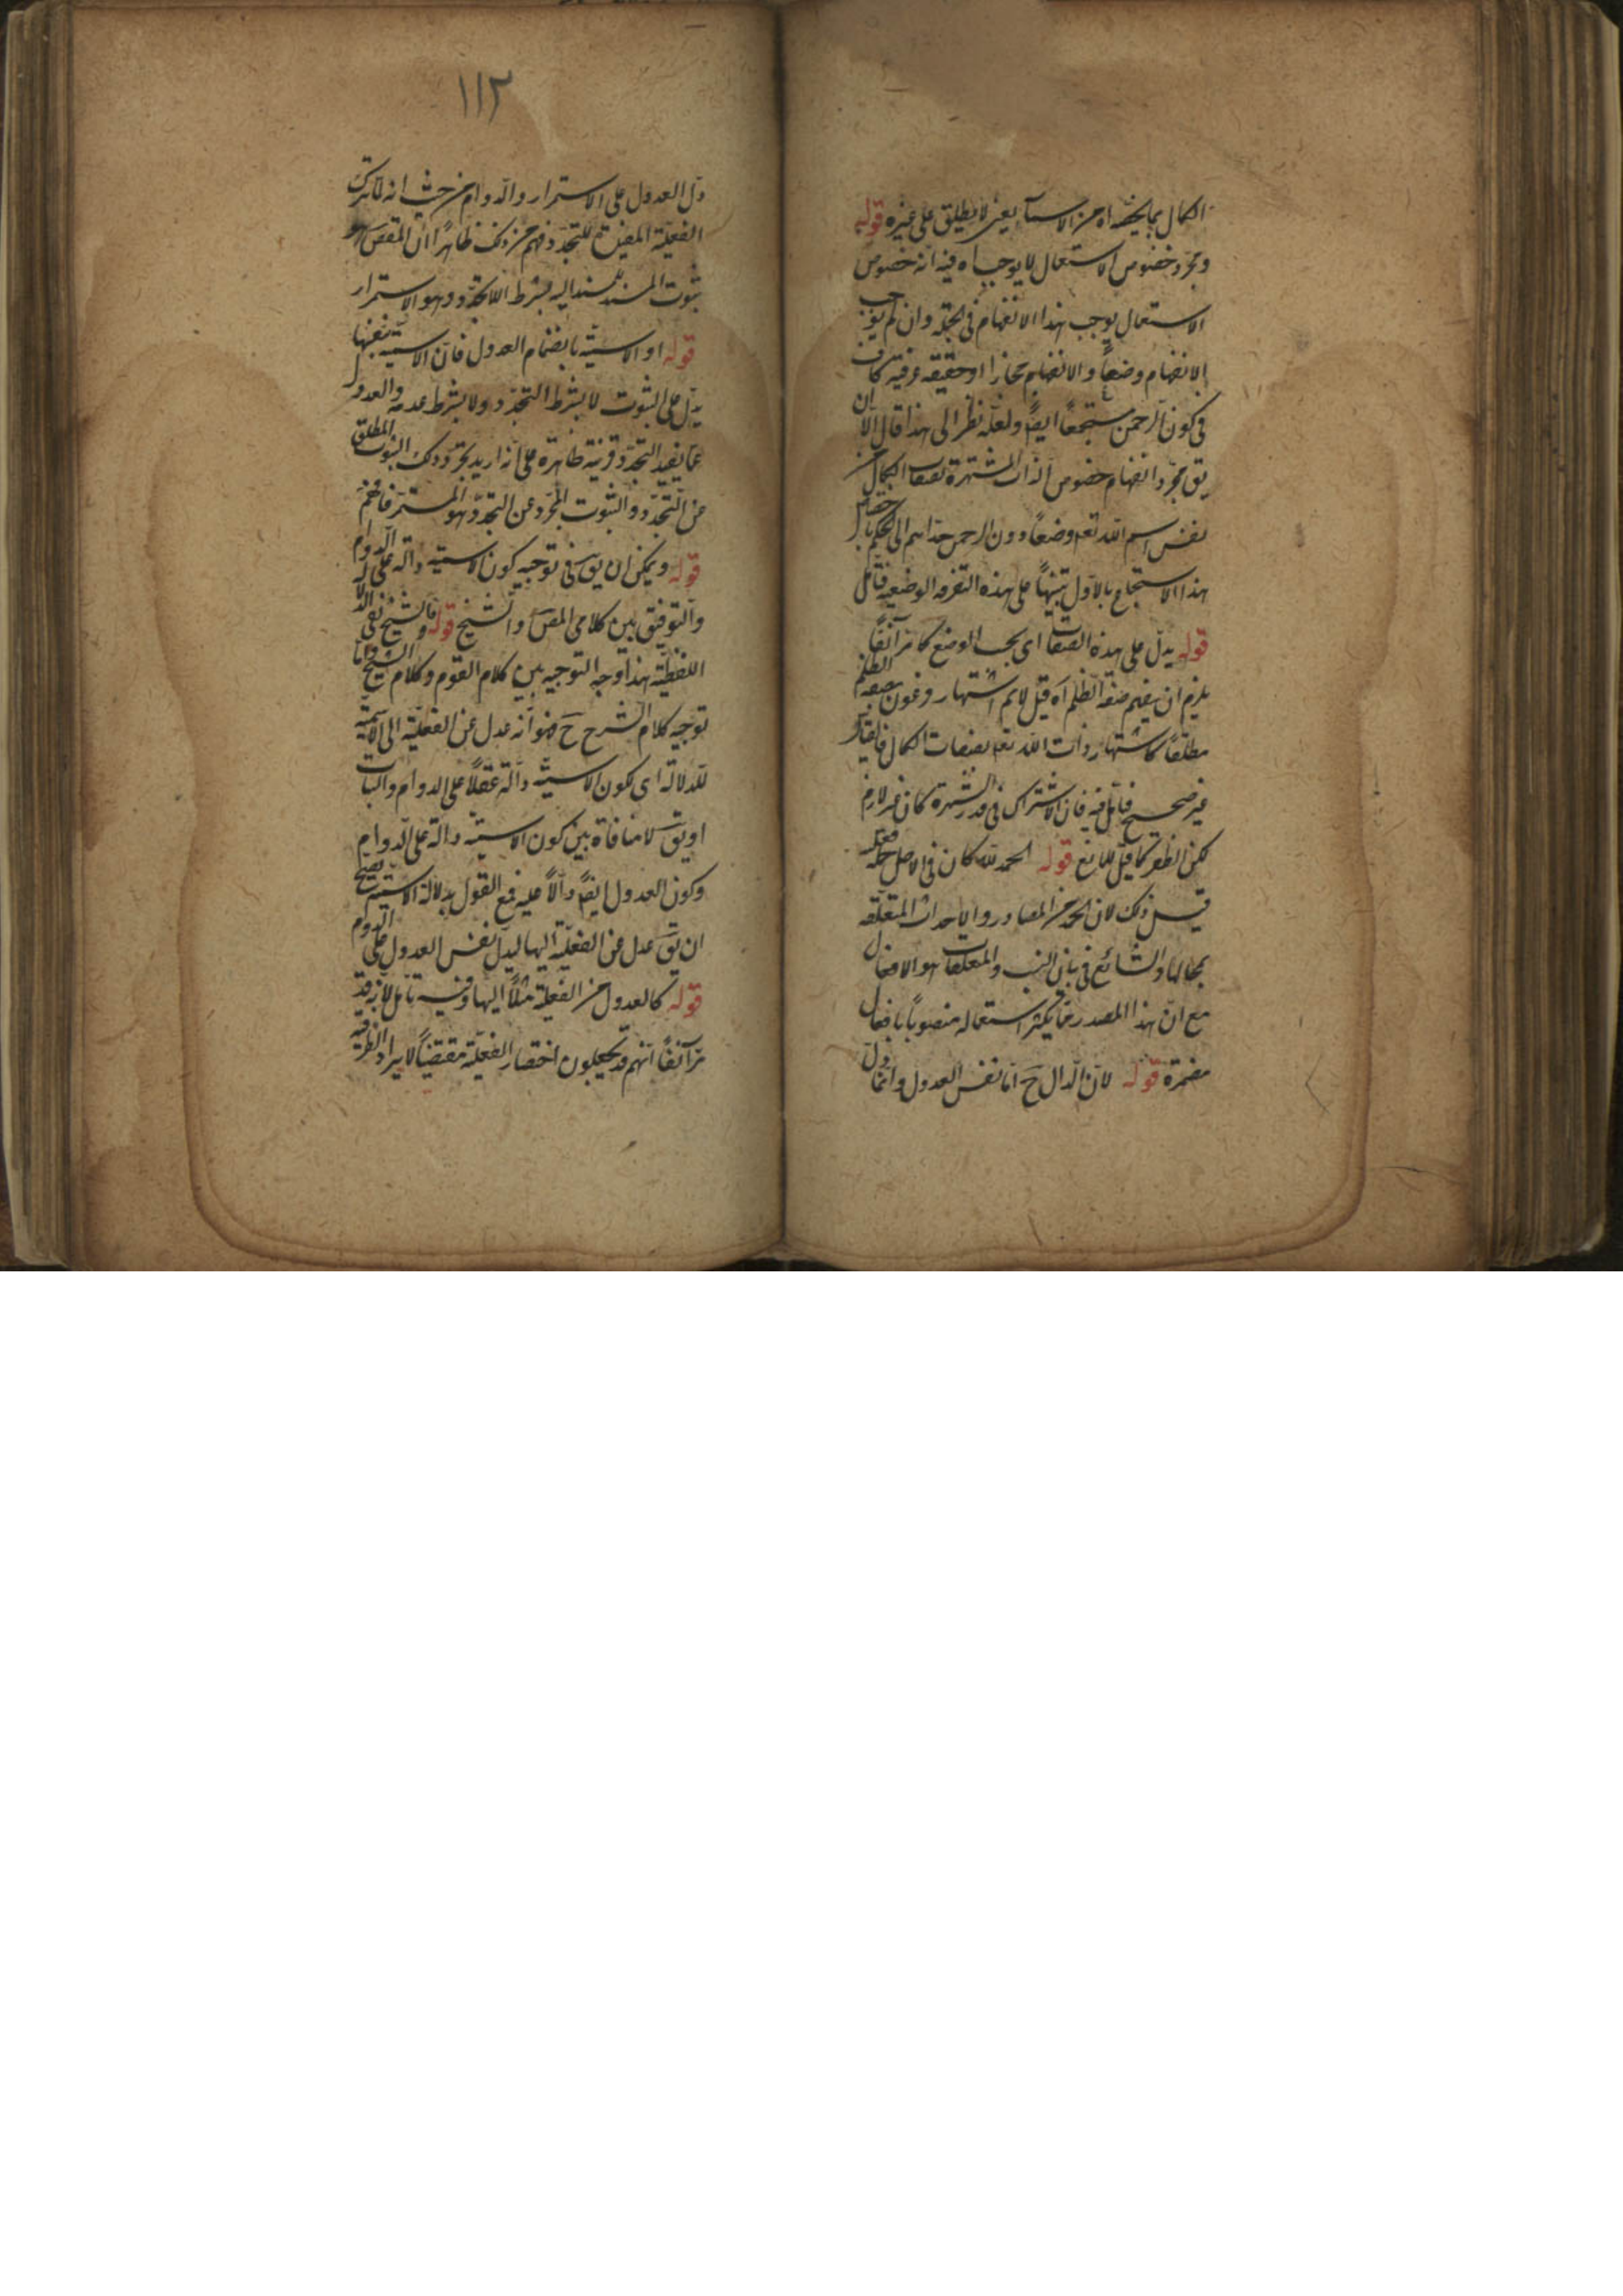 الكمال بما يخصه اه من الاسماء يعنى لا يطلق على غيره قوله
ومجرد خصوص الاستعمال لا يوجب اه فيه انه خصوص
الاستعمال يوجب هذا الانفهام فى الجملة وان لم يوجب
الانفهام وضعاً والانفهام مجازا او حقيقة عرفية كاف
فى كون الرحمن مستجمعاً ايضاً ولعله نظر الى هذا قال الا ان
يق مجرد انفهام خصوص الذات المشتهرة بصفات الكمال
نفس اسم الله تعه وضعاً دون الرحمن الحكم باختصاص
هذا الاستجماع بالاول تنبيهاً على هذه التفرقة الوضعية فتأمل
قوله يدل على هذه الصفات اى بحسب الوضع كما مر آنفاً
يلزم ان يفهم صفة الظلم اه قيل لا يتم اشتهار فرعون بصفة الظلم
مطلقاً كاشتهار ذات الله تعه بصفات الكمال فالقياس
غير صحيح فتأمل فيه فان الاشتراك فى قدر الشهرة كان غير لازم
لكن لظهر كما قيل للمانع قوله الحمد لله كان فى الاصل جملة فعلية
قيل ذلك لان الحمد من المصادر والاحداث المتعلقة
بمحالها والشائع فى بيان النسب والمتعلقات هو الافعال
مع ان هذا المصدر مما يكثر استعماله منصوباً بافعال
مضمرة قوله لان الدال ح اما نفس العدول وانما دل
١١٢
دل العدول على الاستمرار والدوام من حيث انه لما ترك
الفعلية المفيدة للتجدد فهم من ذلك ظاهراً ان المقص هو
ثبوت المسند للمسند اليه بشرط اللاتجدد وهو الاستمرار
قوله او الاسمية بانضمام العدول فان الاسمية بنفسها
يدل على الثبوت لا بشرط التجدد ولا بشرط عدمه والعدول
عما يفيد التجدد قرينة ظاهرة على انه اريد تجرد ذلك الثبوت المطلق
عن التجدد والثبوت المجرد عن التجدد هو المستمر فافهم
قوله ويمكن ان يق فى توجيه كون الاسمية دالة على الدوام
والتوفيق بين كلامى المص والشيخ قوله فالشيخ نفى الدلالة
اللفظية هذا وجه التوجيه بين كلام القوم وكلام الشيخ واما
توجيه كلام الشرح ح فهو انه عدل عن الفعلية الى الاسمية
للدلالة اى لكون الاسمية دالة عقلاً على الدوام والثبات
او يق لا منافاة بين كون الاسمية دالة على الدوام
وكون العدول ايضاً دالاً عليه فمع القول بدلالة الاسمية يصح
ان يق عدل عن الفعلية اليها ليدل نفس العدول على الدوام
قوله كالعدول عن الفعلية مثلاً اليها وفيه تأمل لانه قد
مر آنفاً انهم قد يجعلون اختصار الفعلية مقتضياً لايراد الظرفية